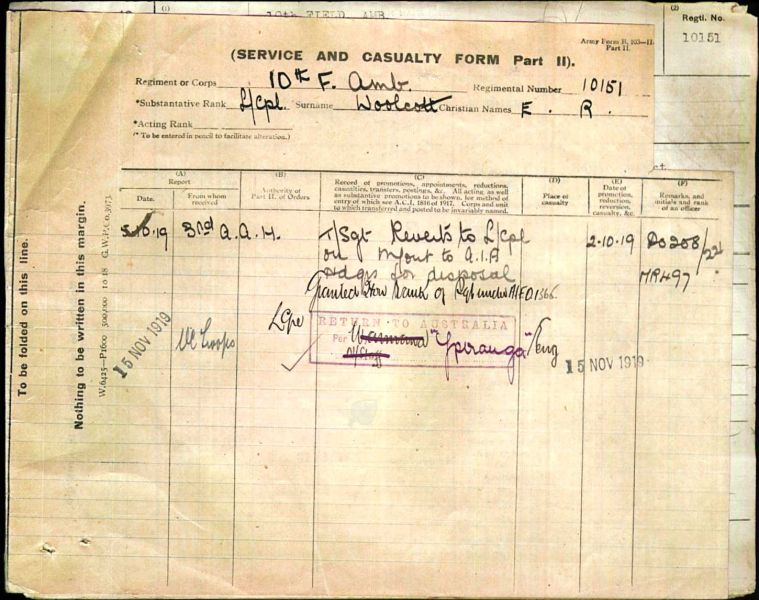 10th FIELD AMB.
(1)
(2)
Regtl. No.
10151
Army Form B. 103—II.
Part II.
(SERVICE AND CASUALTY FORM Part II).
Regiment or Corps 10th F. Amb. Regimental Number 10151
*Substantative Rank L/Cpl. Surname Woolcott Christian Names E. R.
*Acting Rank
(* To be entered in pencil to facilitate alteration.)
(A)
Report
Date.
From whom received
(B)
Authority of Part II. of Orders
(C)
Record of promotions, appointments, reductions, casualties, transfers, postings, &c. All acting as well as substantive promotions to be shown, for method of entry of which see A.C.I. 1816 of 1917. Corps and unit to which transferred and posted to be invariably named.
(D)
Place of casualty
(E)
Date of promotion, reduction, reversion, casualty, &c.
(F)
Remarks, and initials and rank of an officer
5.10.19 3rd A.A.H. T/Sgt Reverts to L/Cpl 2.10.19 Do 208/22
on M/out to A.I.A
Hdqrs for disposal MR497
Granted Hon Rank of Sgt under AIFO 1366
LCpl RETURN TO AUSTRALIA
15 NOV 1919 Per "Ypiranga" Eng 15 NOV 1919
To be folded on this line.
Nothing to be written in this margin.
W.6425—P1600 500,000 10 18 G.W.P.Co.3973